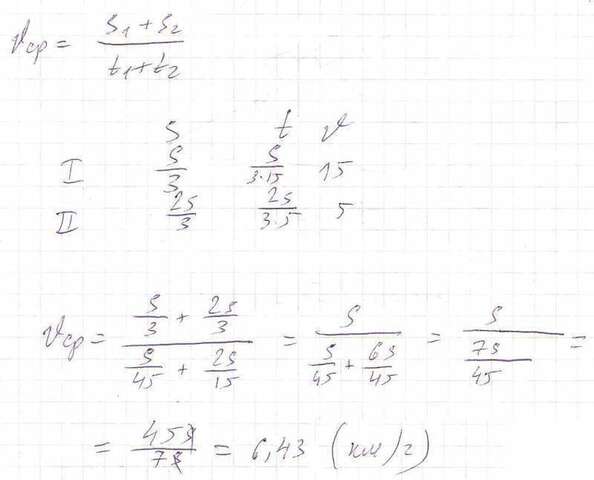 vср = (S1 + S2)/(t1 + t2)
S t v
I S/3 S/3·15 15
II 2S/3 2S/3·5 5
vср = (S/3 + 2S/3)/(S/45 + 2S/15) = S/(S/45 + 6S/45) = S/(7S/45) =
= 45S/7S = 6,43 (км/г)